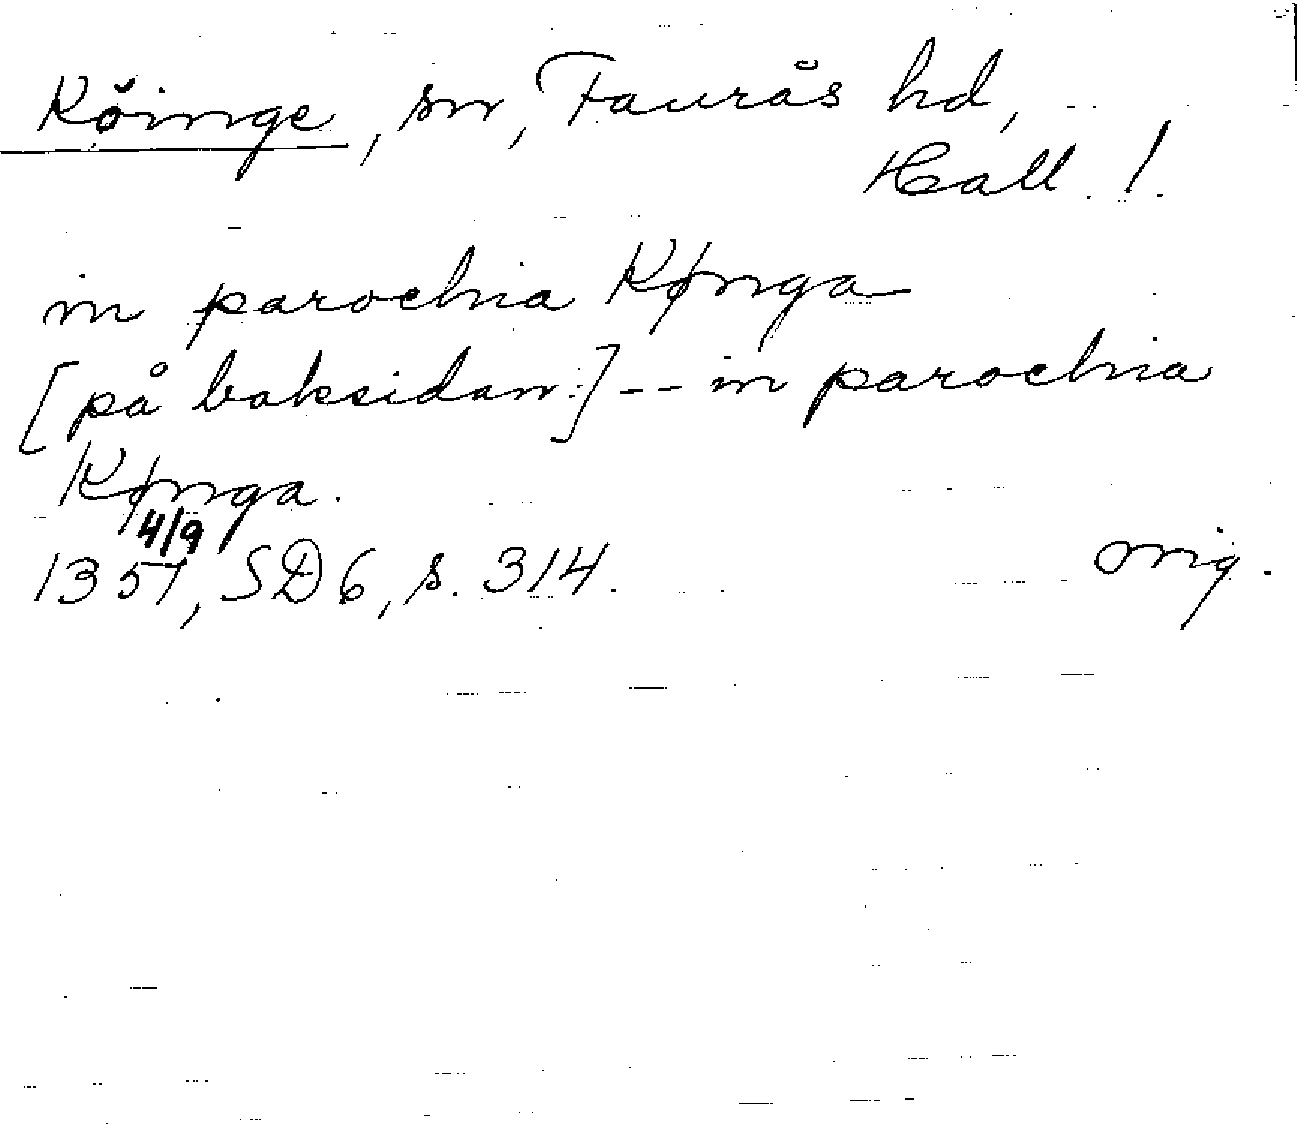 Köinge, sn, Faurås hd,
Hall. !
in parochia Kønga
[på baksidan:] -- in parochia
Kønga.
4/9
1357, SD6, s. 314.
orig.